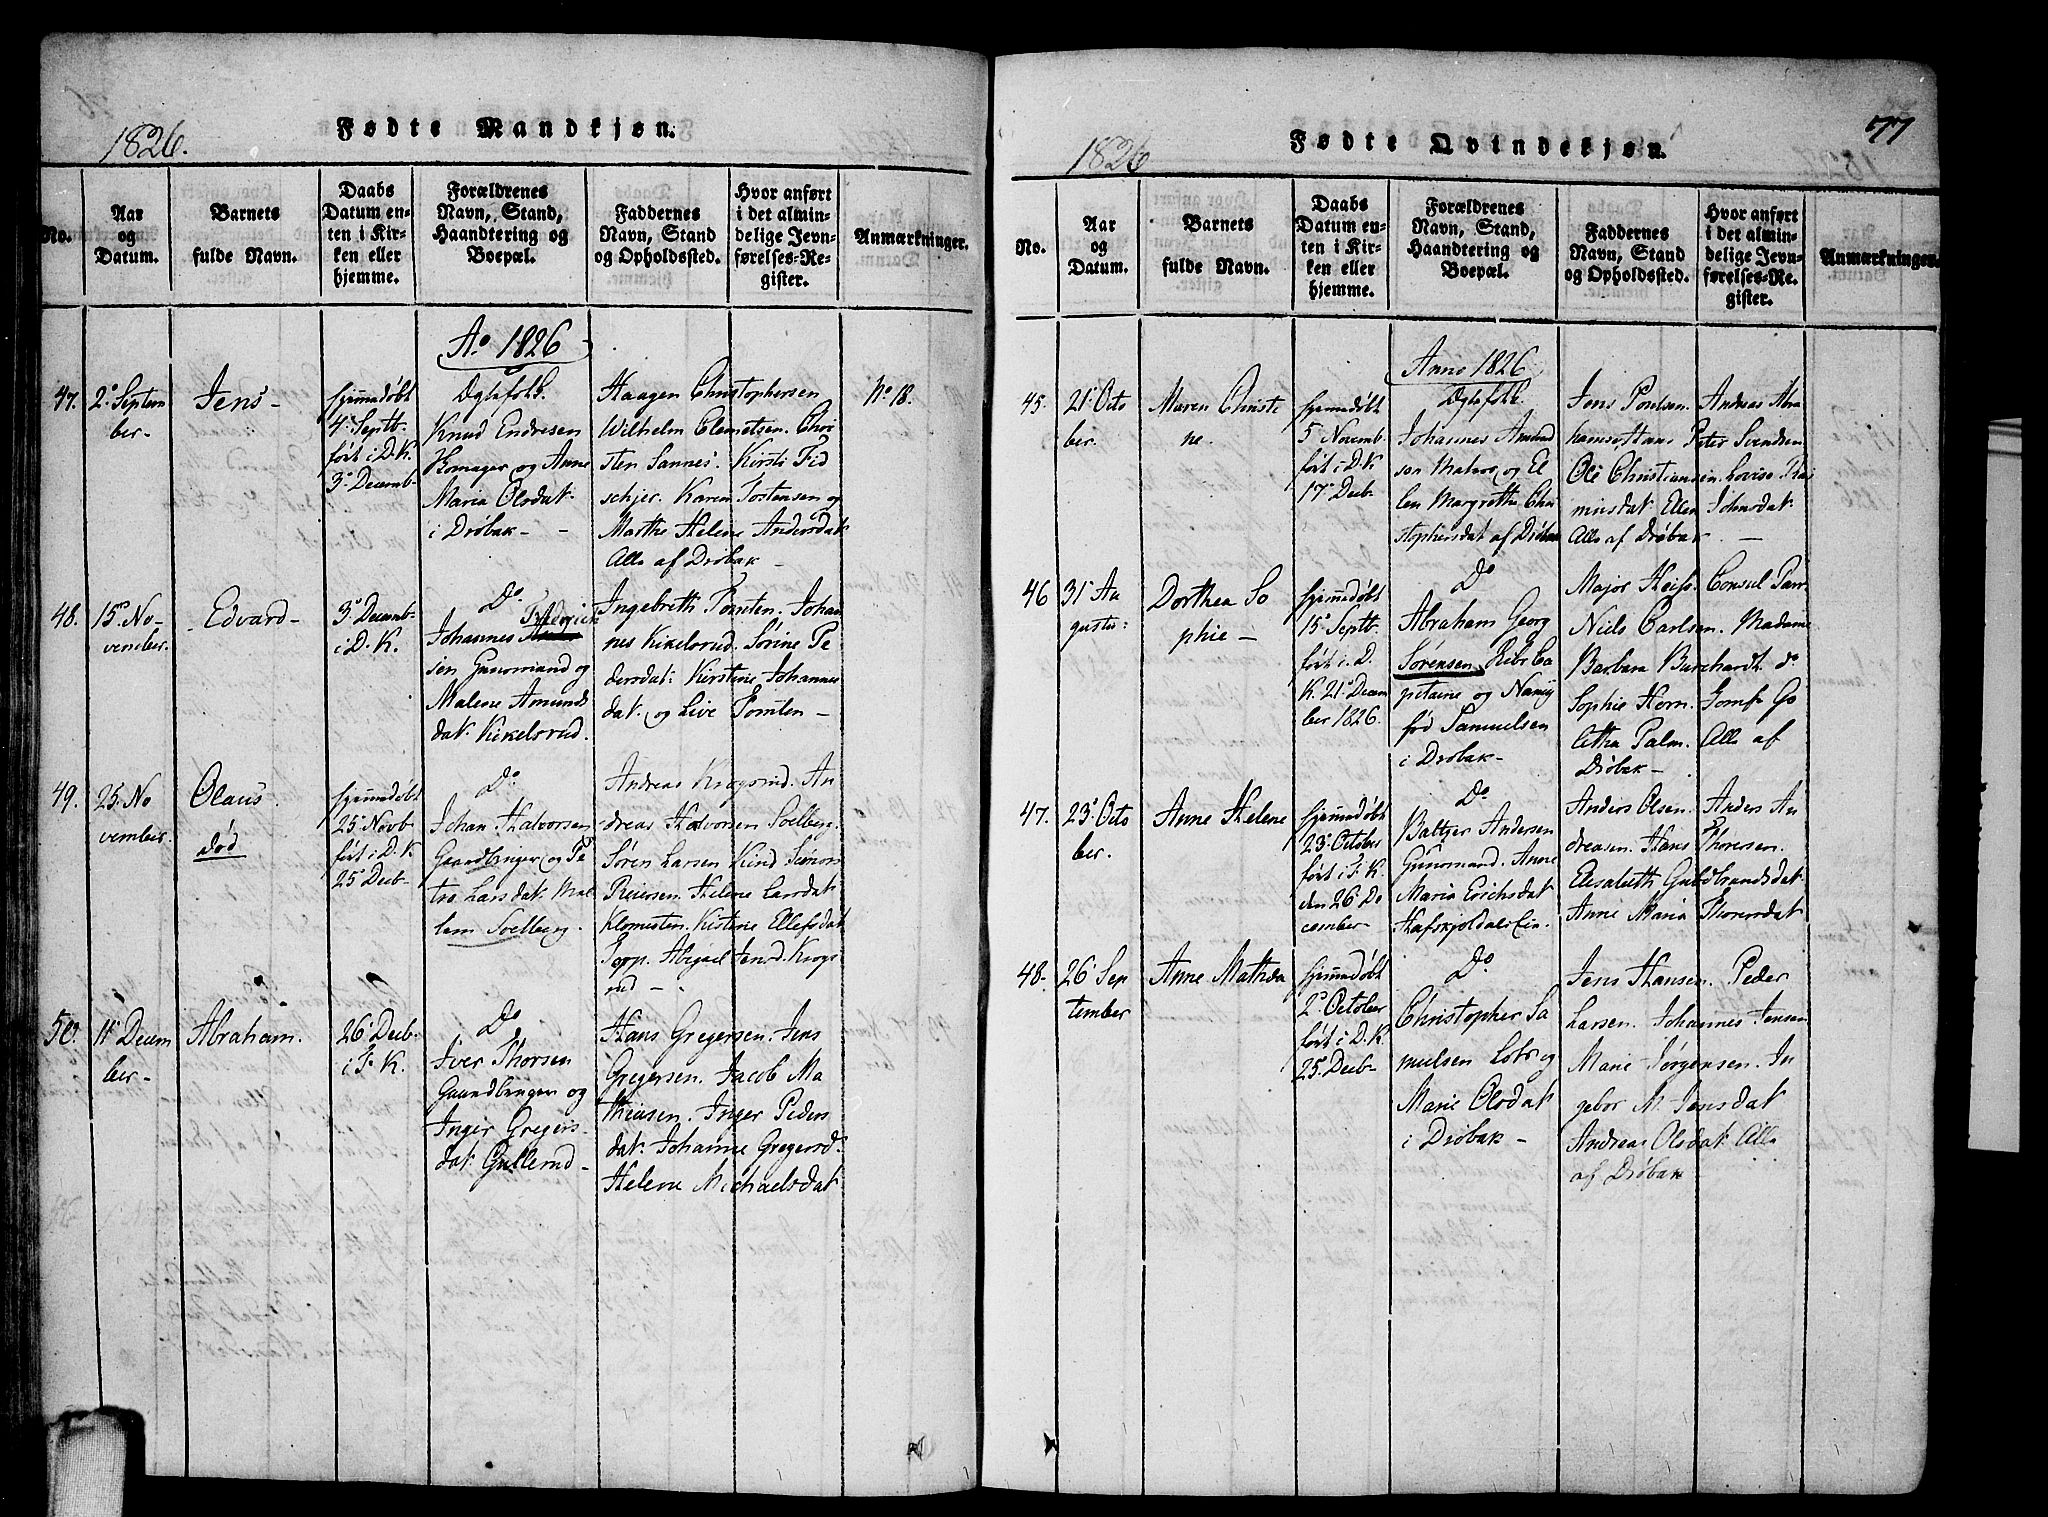 1826.
Fødte Mandkjøn.
No.
Aar og Datum.
Barnets fulde Navn.
Daabs Datum enten i Kirken eller hjemme.
Forældrenes Navn, Stand, Haandtering og Boepæl.
Faddernes Navn, Stand og Opholdssted.
Hvor anført i det almindelige Jevnførelses-Register.
Anmærkninger.
Ao 1826
47.
2. Septem
ber-
Jens-
hjemmedøbt
4. Septt-
ført i D. K.
3. Decemb-
Ægtefolk.
Knud Endresen
og Anne
Maria Olsdat.
i Drøbak-
Haagen Christophersen
Wilhelm Clemetsen. Chri
sten Sannes. Kirsti Fid
schjer. Karen Tostensen og
Marthe Helene Andersdat
Alle af Drøbak-
No. 18.
48.
15. No-
vember.
Edvard-
3. Decemb-
i D. K.
Do
Johannes Frederich
sen Huusmand og
Malene Amunds
dat. Kikelsrud.
Ingebreth Tomten. Johan
nes Kikelsrud. Sørine Pe
dersdat. Kirstine Johannes
dat. og Live Tomten-
49.
25. No
vember.
Olaus.
død
hjemmedøbt
25. Novb-
ført i D. K
25. Decb-
Do
Johan Halvorsen
Gaardbruger og Pe
tro. Larsdat.
Soelberg.
Andreas Krogsrud. An
dreas Halvorsen Soelberg.
Søren Larsen Kind
Reiersen. Helene Larsdat
Kirstine Ellefsdat
Torp. Abigael Jensd. Krogs
rud-
50.
11. Decem
ber-
Abraham.
26. Decb-
i F. K.
Do
Iver Thorsen
Gaardbruger og
Inger Gregers
dat.
Hans Gregersen. Jens
Gregersen. Jacob Ma
thiesen. Inger Peders
dat. Johanne Gregersd.
Helene Michaelsdat
1826
Fødte Qvindekjøn.
77
No.
Aar og Datum.
Barnets fulde Navn.
Daabs Datum enten i Kirken eller hjemme.
Forældrenes Navn, Stand, Haandtering og Boepæl.
Faddernes Navn, Stand og Opholdssted.
Hvor anført i det almindelige Jevnførelses-Register.
Anmærkninger.
Anno 1826
45.
21. Octo
ber.
Maren Christi
ne.
hjemmedøbt
5 Novemb-
ført i D. K
17. Decb-
Ægtefolk.
Johannes Amund
sen Matros og El
len Margrethe Chri
stophersdat af Drøbak
Jens Poulsen. Andreas Abra
hamsen Hans Peter Svendsen
Ole Christiansen. Lovise Ras
musdat. Ellen Johnsdat.
Alle af Drøbak-
46
31. Au
gustus
Dorthea So
phie-
hjemmedøbt
15. Septt-
ført i D.
K. 21. Decem
ber 1826.
Do
Abraham Georg
Sørensen Skibs Ca
pitaine og Nancy
fød Samuelsen
i Drøbak-
Major Heiss. Consul Parr
Niels Carlsen. Madame
Barbara Burchardt. do
Sophie Horn. Jomf. Go
Palm. Alle af
Drøbak-
47.
23. Octo
ber.
Anne Helene
hjemmedøbt
23. October
ført i F. K.
den 26. De
cember-
Do
Baltzer Andersen
Huusmand. Anne
Maria Erichsdat.
Anders Olsen. Anders An
dreasen. Hans Thoresen.
Elisabeth Guldbrandsdat.
Anne Maria Thoresdat
48.
26. Sep
tember
Anne Mathea
hjemmedøbt
2. October
ført i D. K.
25. Decb-
Do
Christopher Sa
muelsen Lods og
Marie Olsdat
i Drøbak-
Jens Hansen. Peder
Larsen. Johannes Jensen
Marie Jørgensen. In
gebor M. Jensdat
Andrea Olsdat. Alle
af Drøbak